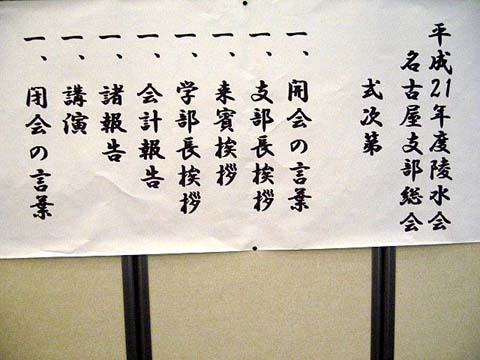 平成21年度陵水会
名古屋支部総会
式次第
一、開会の言葉
一、支部長挨拶
一、来賓挨拶
一、学部長挨拶
一、会計報告
一、諸報告
一、講演
一、閉会の言葉